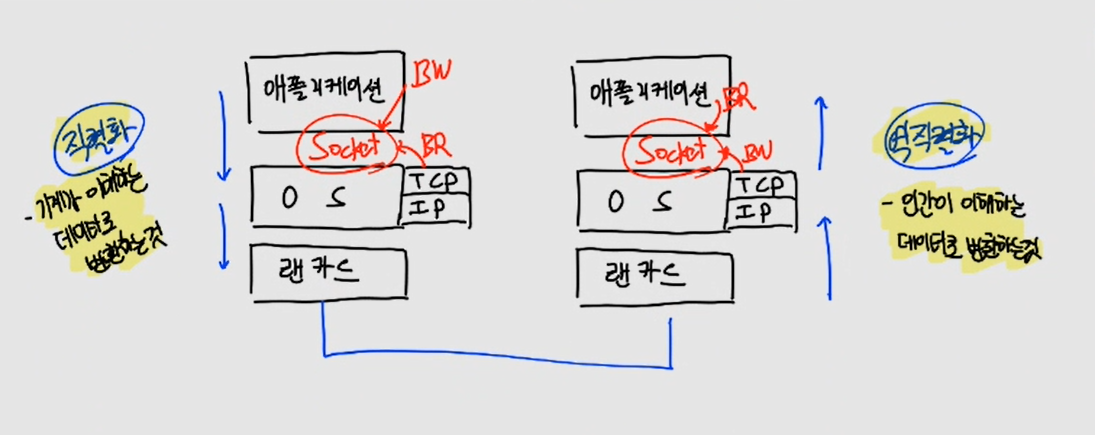 직렬화
- 기계가 이해하는
데이터로
변환하는것
애플리케이션
BW
Socket
BR
O S
TCP
IP
랜카드
애플리케이션
BR
Socket
BW
O S
TCP
IP
랜카드
역직렬화
- 인간이 이해하는
데이터로 변환하는것